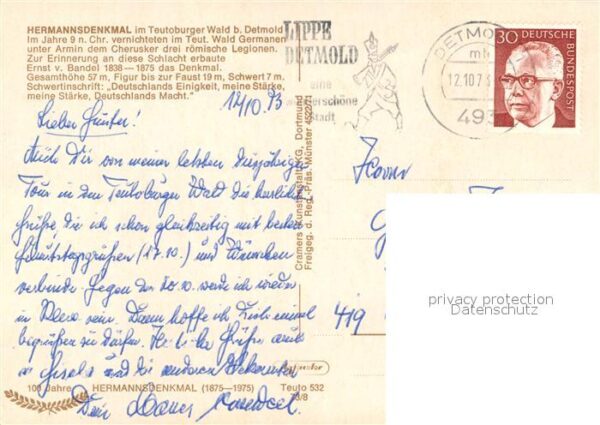 HERMANNSDENKMAL im Teutoburger Wald b. Detmold
Im Jahre 9 n. Chr. vernichteten im Teut. Wald Germanen
unter Armin dem Cherusker drei römische Legionen.
Zur Erinnerung an diese Schlacht erbaute
Ernst v. Bandel 1838—1875 das Denkmal.
Gesamthöhe 57 m, Figur bis zur Faust 19 m, Schwert 7 m.
Schwertinschrift: „Deutschlands Einigkeit, meine Stärke,
meine Stärke, Deutschlands Macht."
LIPPE
DETMOLD
eine
wunderschöne
Stadt
DETMOLD
12.10.73
493
30
DEUTSCHE BUNDESPOST
12/10.73
Lieber Günter!
Auch Dir von meiner letzten diesjährigen
Tour in den Teutoburger Wald die herzlichsten
Grüße, die ich schon gleichzeitig mit besten
Geburtstagsgrüßen (17.10.) und Wünschen
verbinde. Gegen den 20.10. werde ich wieder
in Kleve sein. Dann hoffe ich Dich einmal
begrüßen zu dürfen. Herzliche Grüße auch
an Gisela und die anderen Bekannten
Dein
Herrn
419
Cramers Kunstanstalt KG, Dortmund
Freigeg. d. Reg.-Präs. Münster
100 Jahre HERMANNSDENKMAL (1875—1975) Teuto 532
privacy protection
Datenschutz